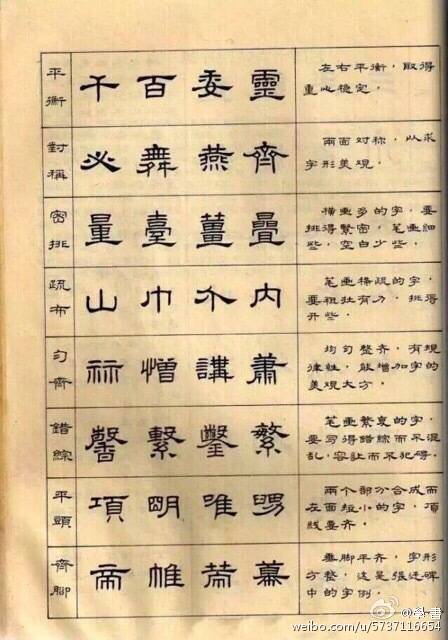 平衡
千百委靈
左右平衡，取得
重心稳定。
對稱
必舞燕齊
兩面对称，以求
字形美观。
密排
量臺薑疊
横画多的字，要
排得緊密，笔画细
些，空白少些。
疏布
山巾介内
笔画稀疏的字，
要粗壮有力，排得
开些。
匀齊
憎講蕭
均匀整齐，有规
律性，能增加字的
美观大方。
錯綜
馨繫鑿繁
笔画繁复的字，
要写得錯綜而不混
乱，容让而不犯碍。
平頭
項明唯
兩个部分合成而
左面短小的字，頂
线要齐。
齊腳
帝帷常幕
垂脚平齐，字形
方整，这是張迁碑
中的字例。
weibo.com/u/5737116654